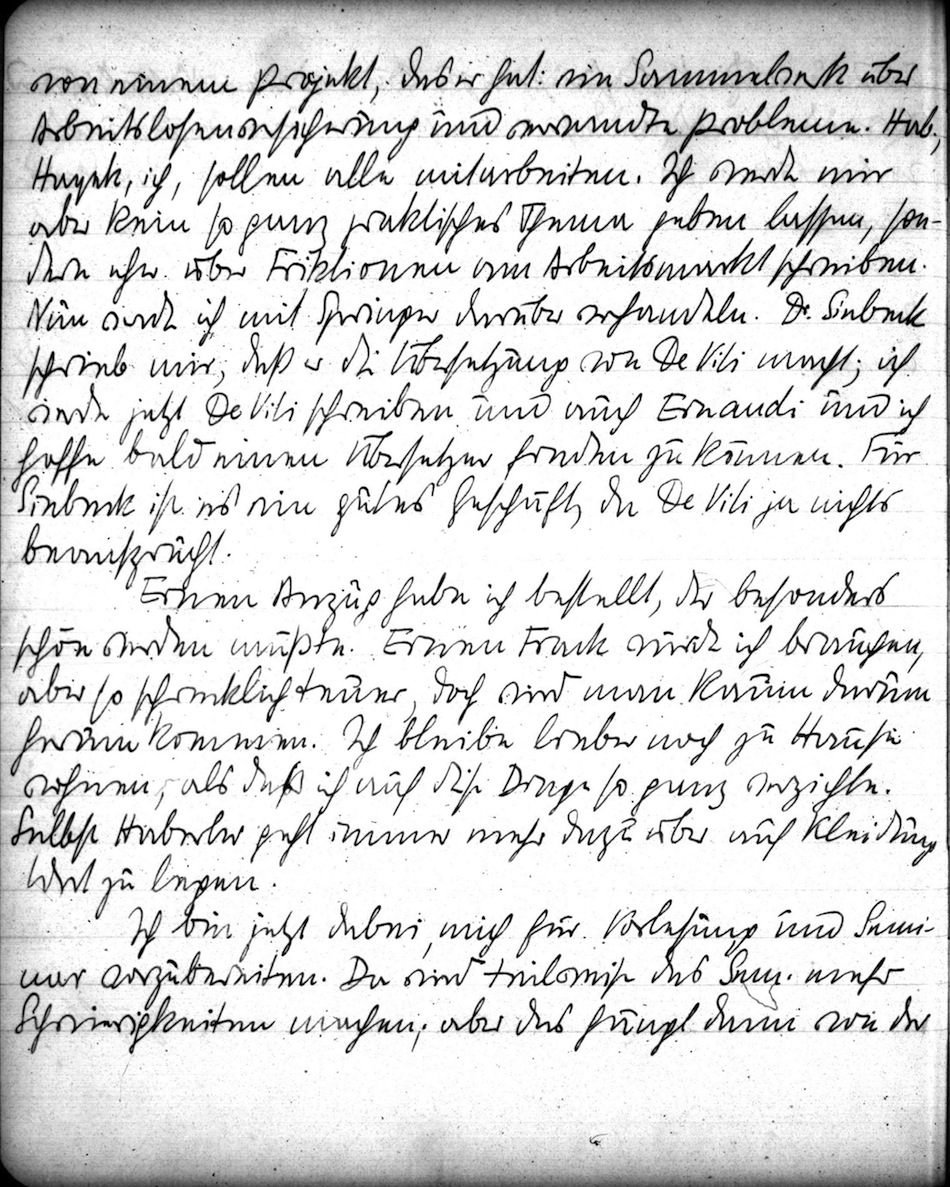 von einem Projekt, das er hat: ein Sammelwerk über
Arbeitslosenversicherung und verwandte Probleme. Hab.,
Hayek, ich, sollen alle mitarbeiten. Ich werde mir
aber kein so ganz praktisches Thema geben lassen, son-
dern eher über Friktionen am Arbeitsmarkt schreiben.
Nun werde ich mit Springer darüber verhandeln. Dr. Sinbeck
schrieb mir, daß er die Übersetzung von De Viti macht; ich
werde jetzt De Viti schreiben und auch Einaudi und ich
hoffe bald einen Übersetzer finden zu können. Für
Sinbeck ist es ein gutes Geschäft, da De Viti ja nichts
beansprucht.
Einen Anzug habe ich bestellt, der besonders
schön werden müßte. Einen Frack würde ich brauchen,
aber so schrecklich teuer, doch wird man kaum darum
herum kommen. Ich bleibe lieber noch zu Hause
wohnen, als daß ich auf diese Dinge so ganz verzichte.
Selbst Haberler geht immer mehr dazu über auf Kleidung
Wert zu legen.
Ich bin jetzt dabei, mich für Vorlesung und Semi-
nar vorzubereiten. Da wird teilweise das Sem. mehr
Schwierigkeiten machen; aber das hängt dann von der